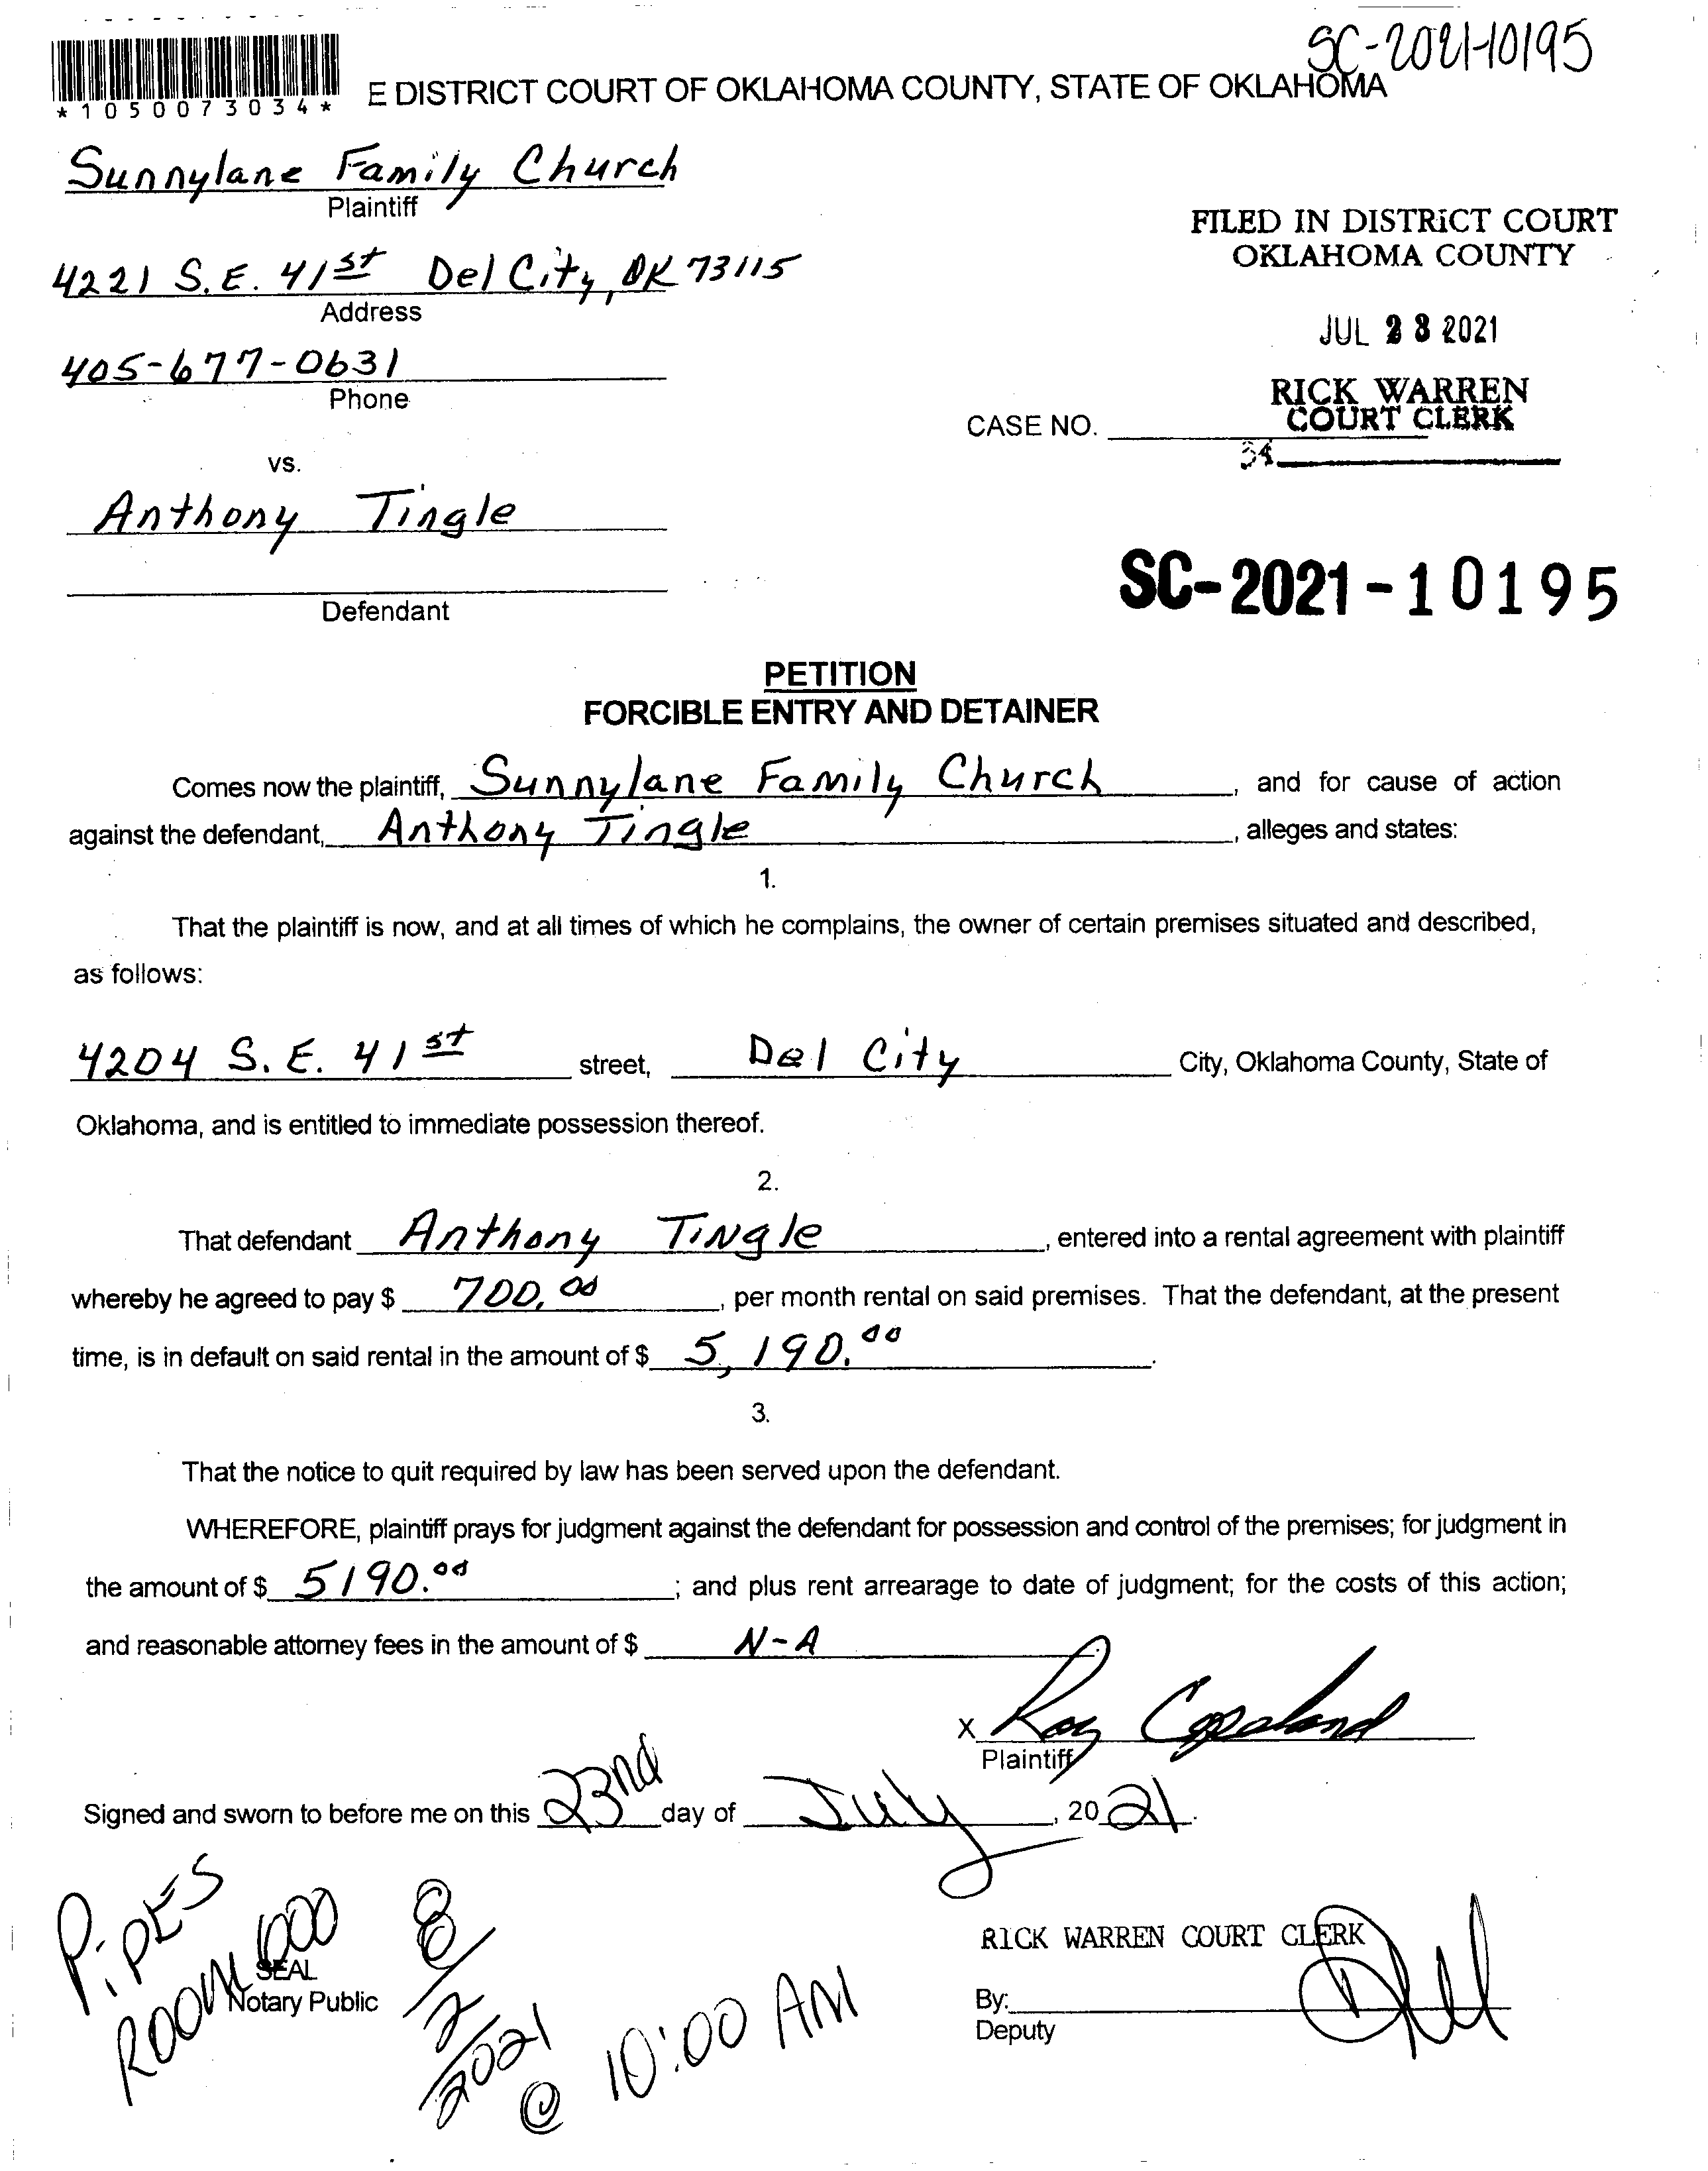 SC-2021-10195
*1050073034*
E DISTRICT COURT OF OKLAHOMA COUNTY, STATE OF OKLAHOMA
Sunnylane Family Church
Plaintiff
4221 S.E. 41st Del City, OK 73115
Address
405-677-0631
Phone
vs.
Anthony Tingle
Defendant
FILED IN DISTRICT COURT
OKLAHOMA COUNTY
JUL 23 2021
RICK WARREN
COURT CLERK
CASE NO.
34
SC-2021-10195
PETITION
FORCIBLE ENTRY AND DETAINER
Comes now the plaintiff, Sunnylane Family Church, and for cause of action
against the defendant, Anthony Tingle, alleges and states:
1.
That the plaintiff is now, and at all times of which he complains, the owner of certain premises situated and described,
as follows:
4204 S.E. 41st street, Del City City, Oklahoma County, State of
Oklahoma, and is entitled to immediate possession thereof.
2.
That defendant Anthony Tingle, entered into a rental agreement with plaintiff
whereby he agreed to pay $ 700.00, per month rental on said premises. That the defendant, at the present
time, is in default on said rental in the amount of $ 5,190.00.
3.
That the notice to quit required by law has been served upon the defendant.
WHEREFORE, plaintiff prays for judgment against the defendant for possession and control of the premises; for judgment in
the amount of $ 5190.00; and plus rent arrearage to date of judgment; for the costs of this action;
and reasonable attorney fees in the amount of $ N-A
X Roy Copeland
Plaintiff
Signed and sworn to before me on this 23nd day of July, 2021.
PiPES
ROOM 600
8/2/2021
@ 10:00 AM
SEAL
Notary Public
RICK WARREN COURT CLERK
By:
Deputy